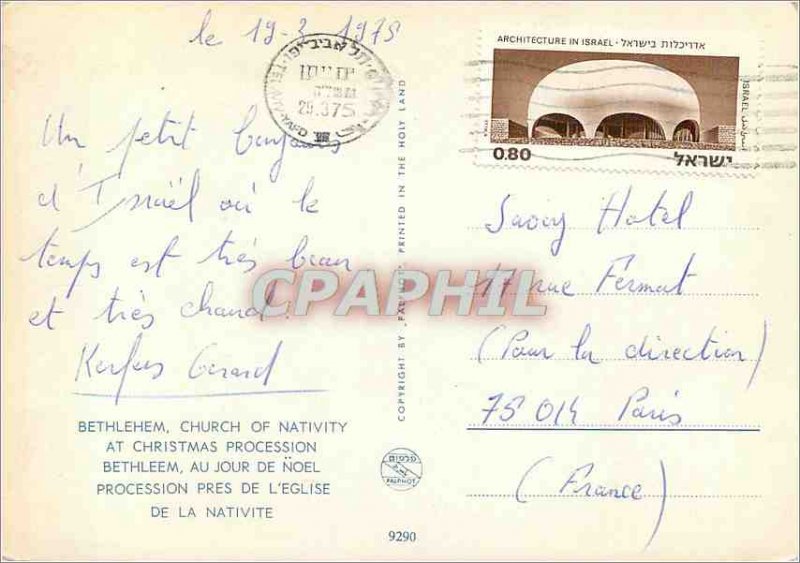 le 19-3 1975
Un petit bonjour
d'Israël où le
temps est très beau
et très chaud.
Gérard
BETHLEHEM, CHURCH OF NATIVITY
AT CHRISTMAS PROCESSION
BETHLEEM, AU JOUR DE NOEL
PROCESSION PRES DE L'EGLISE
DE LA NATIVITE
תל אביב-יפו
TEL AVIV-YAFO
29.3.75
COPYRIGHT BY "PALPHOT" PRINTED IN THE HOLY LAND
פלפוט
PALPHOT
9290
CPAPHIL
ARCHITECTURE IN ISRAEL • אדריכלות בישראל
ISRAEL
0.80
ישראל
Savoy Hotel
17 rue Fermat
(Pour la direction)
75 014 Paris
(France)